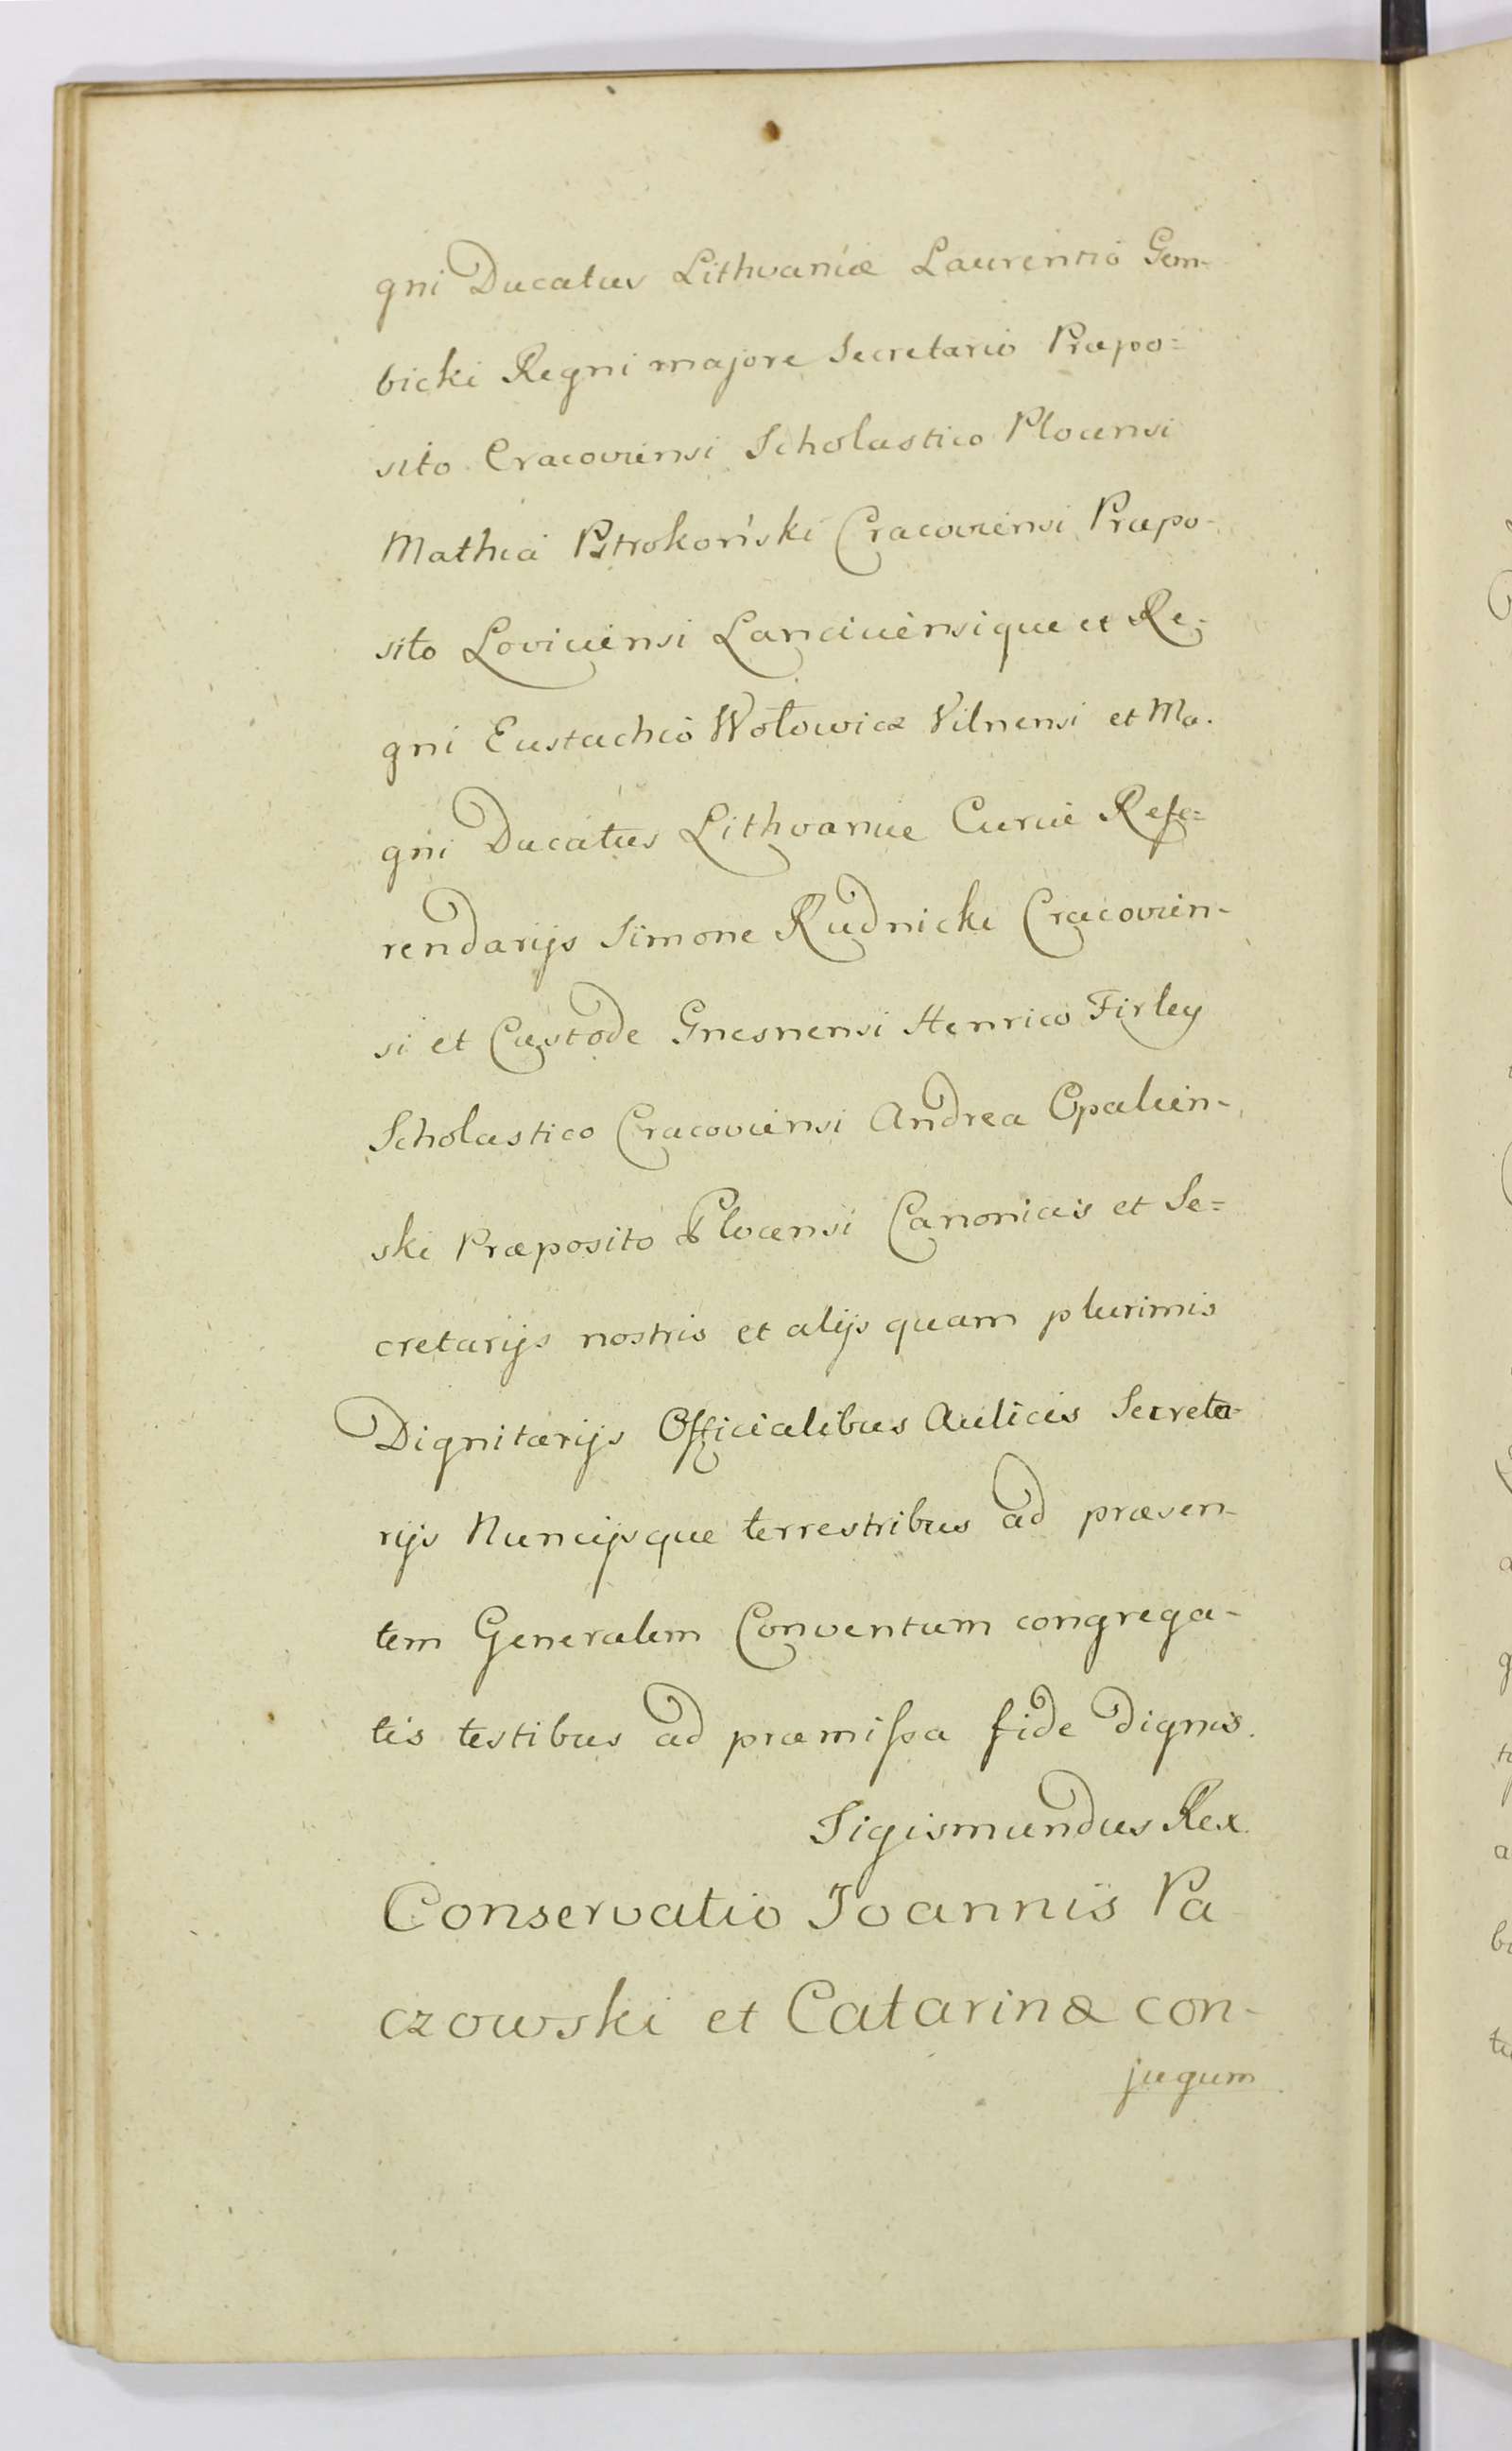 gni Ducatus Lithvaniæ Laurentio Gem-
bicki Regni majore Secretario Præpo=
sito Cracoviensi Scholastico Plocensi
Mathia Pstrokoński Cracoviensi Præpo-
sito Loviciensi Lanciciensique et Re-
gni Eustachio Wołowicz Vilnensi et Ma-
gni Ducatus Lithvaniæ Curiæ Refe=
rendarijs Simone Rudnicki Cracovien-
si et Custode Gnesnensi Henrico Firley
Scholastico Cracoviensi Andrea Opalen-
ski Præposito Plocensi Canonicis et Se=
cretarijs nostris et alijs quam plurimis
Dignitarijs Officialibus Aulicis Secreta-
rijs Nuncijsque terrestribus ad præsen-
tem Generalem Conventum congrega-
tis testibus ad præmissa fide dignis.
Sigismundus Rex
Conservatio Joannis Pa
czowski et Catarinæ con-
jugum